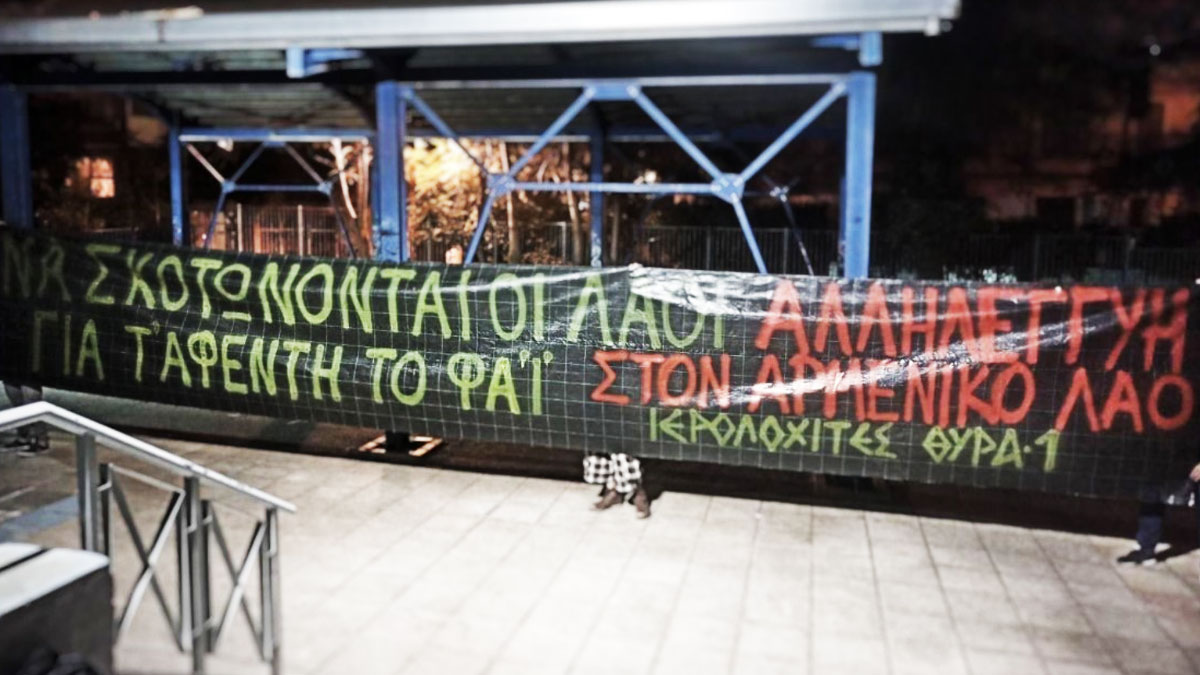 ΝΑ ΣΚΟΤΩΝΟΝΤΑΙ ΟΙ ΛΑΟΙ
ΓΙΑ Τ' ΑΦΕΝΤΗ ΤΟ ΦΑΪ
ΑΛΛΗΛΕΓΓΥΗ
ΣΤΟΝ ΑΡΜΕΝΙΚΟ ΛΑΟ
ΙΕΡΟΛΟΧΙΤΕΣ ΘΥΡΑ·1